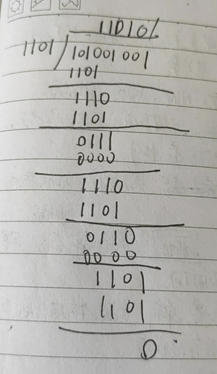 110101
1101 / 101001001
1101
1110
1101
0111
0000
1110
1101
0110
0000
1101
1101
0